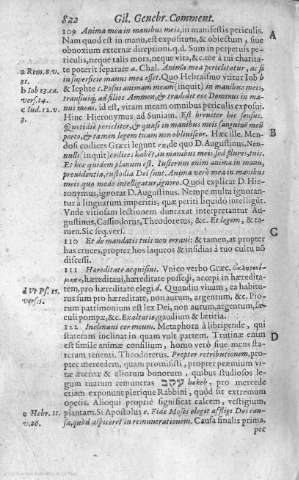 822 Gil. Genebr. Comment.
109 Anima mea in manibus meis, in manifestis periculis.
Nam quod est in manu, est expositum, & obiectum, siue
obnoxium externæ direptioni. q. d. Sum in perpetuis pe-
riculis, neque talis mors, neque vita, &c. me à tui charita-
te poterit separare. a Chal. Anima mea periclitatur, ac si
in superficie manus meæ esset. Quo Hebraismo vtitur Iob b
& Iephte c. Posui animam meam (inquit) in manibus meis,
transiuiq; ad filios Ammon, & tradidit eos Dominus in ma-
nus meas. id est, vitam meam omnibus periculis exposui.
Hinc Hieronymus ad Suniam. Est breuiter hic sensus.
Quotidie periclitor, & quasi in manibus meis sanguinem meum
porto, & tamen legem tuam non obliuiscor. Hæc ille. Men-
dosi codices Græci legunt
nulli inquit codices habent, in manibus meis: sed plures, tuis.
Et hoc quidem planum est. Iustorum enim anima in manu,
prouidentia, custodia Dei sunt. Anima verò mea in manibus
meis quo modo intelligatur, ignoro. Quod explicat D. Hie-
ronymus, ignorat D. Augustinus. Nempe multa ignoran-
tur à linguarum imperitis, quæ peritis liquidò intelligit.
Vnde vitiosam lectionem interpretantur Au-
gustinus, Cassiodorus, Theodoretus, &c. Et legem, & ta-
men. Sic seq. vers.
110 Et de mandatis tuis non erraui: & tamen, at propter
has cruces, propter hos laqueos & insidias à tuo cultu nō
discessi.
111 Hæreditate acquisiui. Vnico verbo Græc.
hæreditaui, hæreditatiæ possedi, accepi in hæredita-
tem, pro hæreditate elegi d. Quandiu viuam, ea habitu-
rus sum pro hæreditate, non aurum, argentum, &c. Pio-
rum patrimonium est lex Dei, non aurum, argentum, sæ-
culi pompa, &c. Exultatio, gaudium & lætitia.
112 Inclinaui cor meum. Metaphora à libripende, qui
stateram inclinat in quam vult partem. Trutinæ enim
est simile animæ consilium, homo verò siue mens sta-
teram tenenti. Theodoretus. Propter retributionem, pro-
pter mercedem, quam promisisti, propter præmium vi-
tæ æternæ & aliorum bonorum, quibus studiosos le-
gum tuarum remuneras עקב hekeb, pro mercede
etiam exponunt plerique Rabbini, quòd sit extremum
operis. Alioqui propriè significat calcem, vestigium,
plantam. St. Apostolus e. Fide Moses elegit affligi Dei cau-
sa, quòd aspiceret in remunerationem. Causa finalis prima,
per
a Rom. 8. v.
b Iob 13.
vers. 14.
c Iud. 12. v.
3.
d Vt Ps. 15.
vers. 5.
e Hebr. 11.
v. 26.
A
C
D